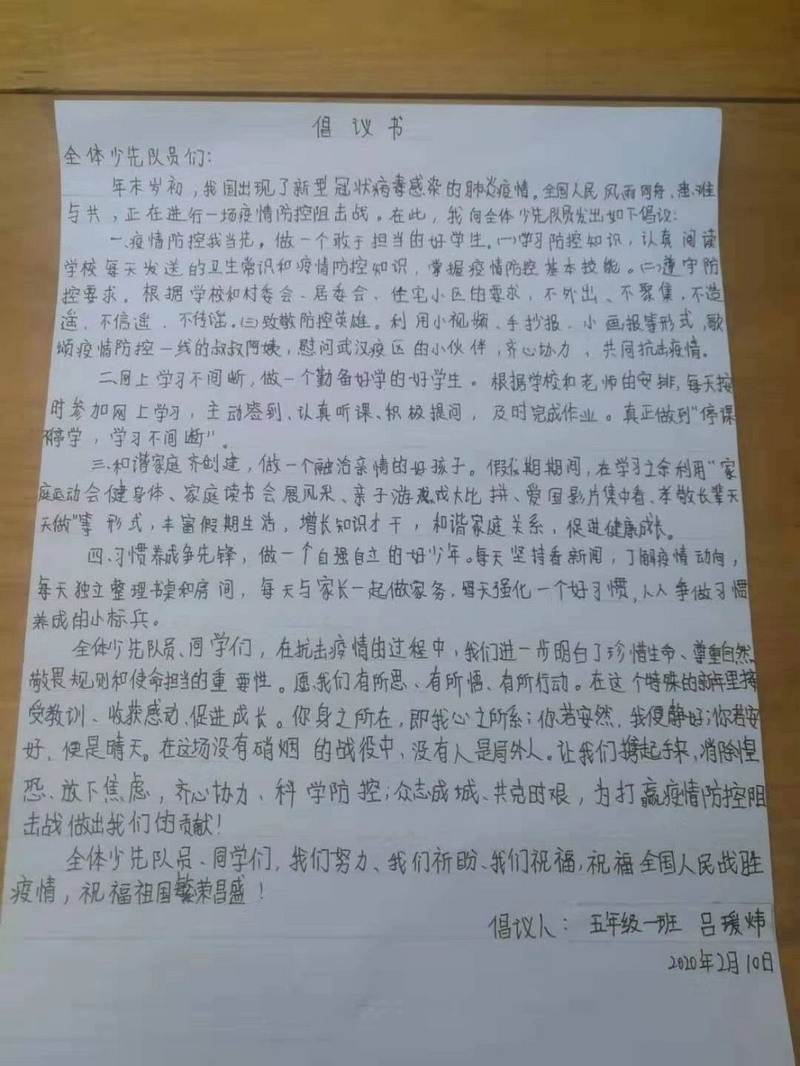 倡议书
全体少先队员们:
年末岁初,我国出现了新型冠状病毒感染的肺炎疫情。全国人民风雨同舟、患难
与共,正在进行一场疫情防控阻击战。在此,我向全体少先队员发出如下倡议:
一.疫情防控我当先,做一个敢于担当的好学生。(一)学习防控知识,认真阅读
学校每天发送的卫生常识和疫情防控知识,掌握疫情防控基本技能。(二)遵守防
控要求。根据学校和村委会、居委会、住宅小区的要求,不外出、不聚集,不造
遥、不信遥、不传谣。(三)致敬防控英雄。利用小视频、手抄报、小画报等形式,歌
颂疫情防控一线的叔叔阿姨,慰问武汉疫区的小伙伴,齐心协力,共同抗击疫情。
二.网上学习不间断,做一个勤备好学的好学生。根据学校和老师的安排,每天按
时参加网上学习,主动签到、认真听课、积极提问,及时完成作业。真正做到“停课
不停学,学习不间断”。
三.和谐家庭齐创建,做一个融洽亲情的好孩子。假期期间,在学习之余利用“家
庭运动会健身体、家庭读书会展风采、亲子游戏大比拼、爱国影片集中看、孝敬长辈天
天做”等形式,丰富假期生活,增长知识才干,和谐家庭关系,促进健康成长。
四.习惯养成争先锋,做一个自强自立的好少年。每天坚持看新闻,了解疫情动向,
每天独立整理书桌和房间,每天与家长一起做家务,每天强化一个好习惯,人人争做习惯
养成的小标兵。
全体少先队员、同学们,在抗击疫情的过程中,我们进一步明白了珍惜生命、尊重自然、
敬畏规则和使命担当的重要性。愿我们有所思、有所悟、有所行动。在这个特殊的新年里接
受教训、收获感动、促进成长。你身之所在,即我心之所系;你若安然,我便静好;你若安
好,便是晴天。在这场没有硝烟的战役中,没有人是局外人。让我们携起手来,消除惶
恐、放下焦虑,齐心协力、科学防控;众志成城、共克时艰,为打赢疫情防控阻
击战做出我们的贡献!
全体少先队员、同学们,我们努力、我们祈盼、我们祝福,祝福全国人民战胜
疫情,祝福祖国繁荣昌盛!
倡议人:五年级一班 吕瑗炜
2020年2月10日